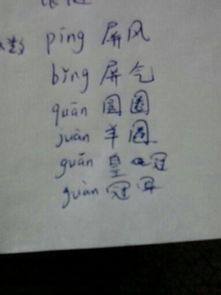 píng 屏风
bǐng 屏气
quān 圆圈
juàn 羊圈
guān 皇冠
guàn 冠军